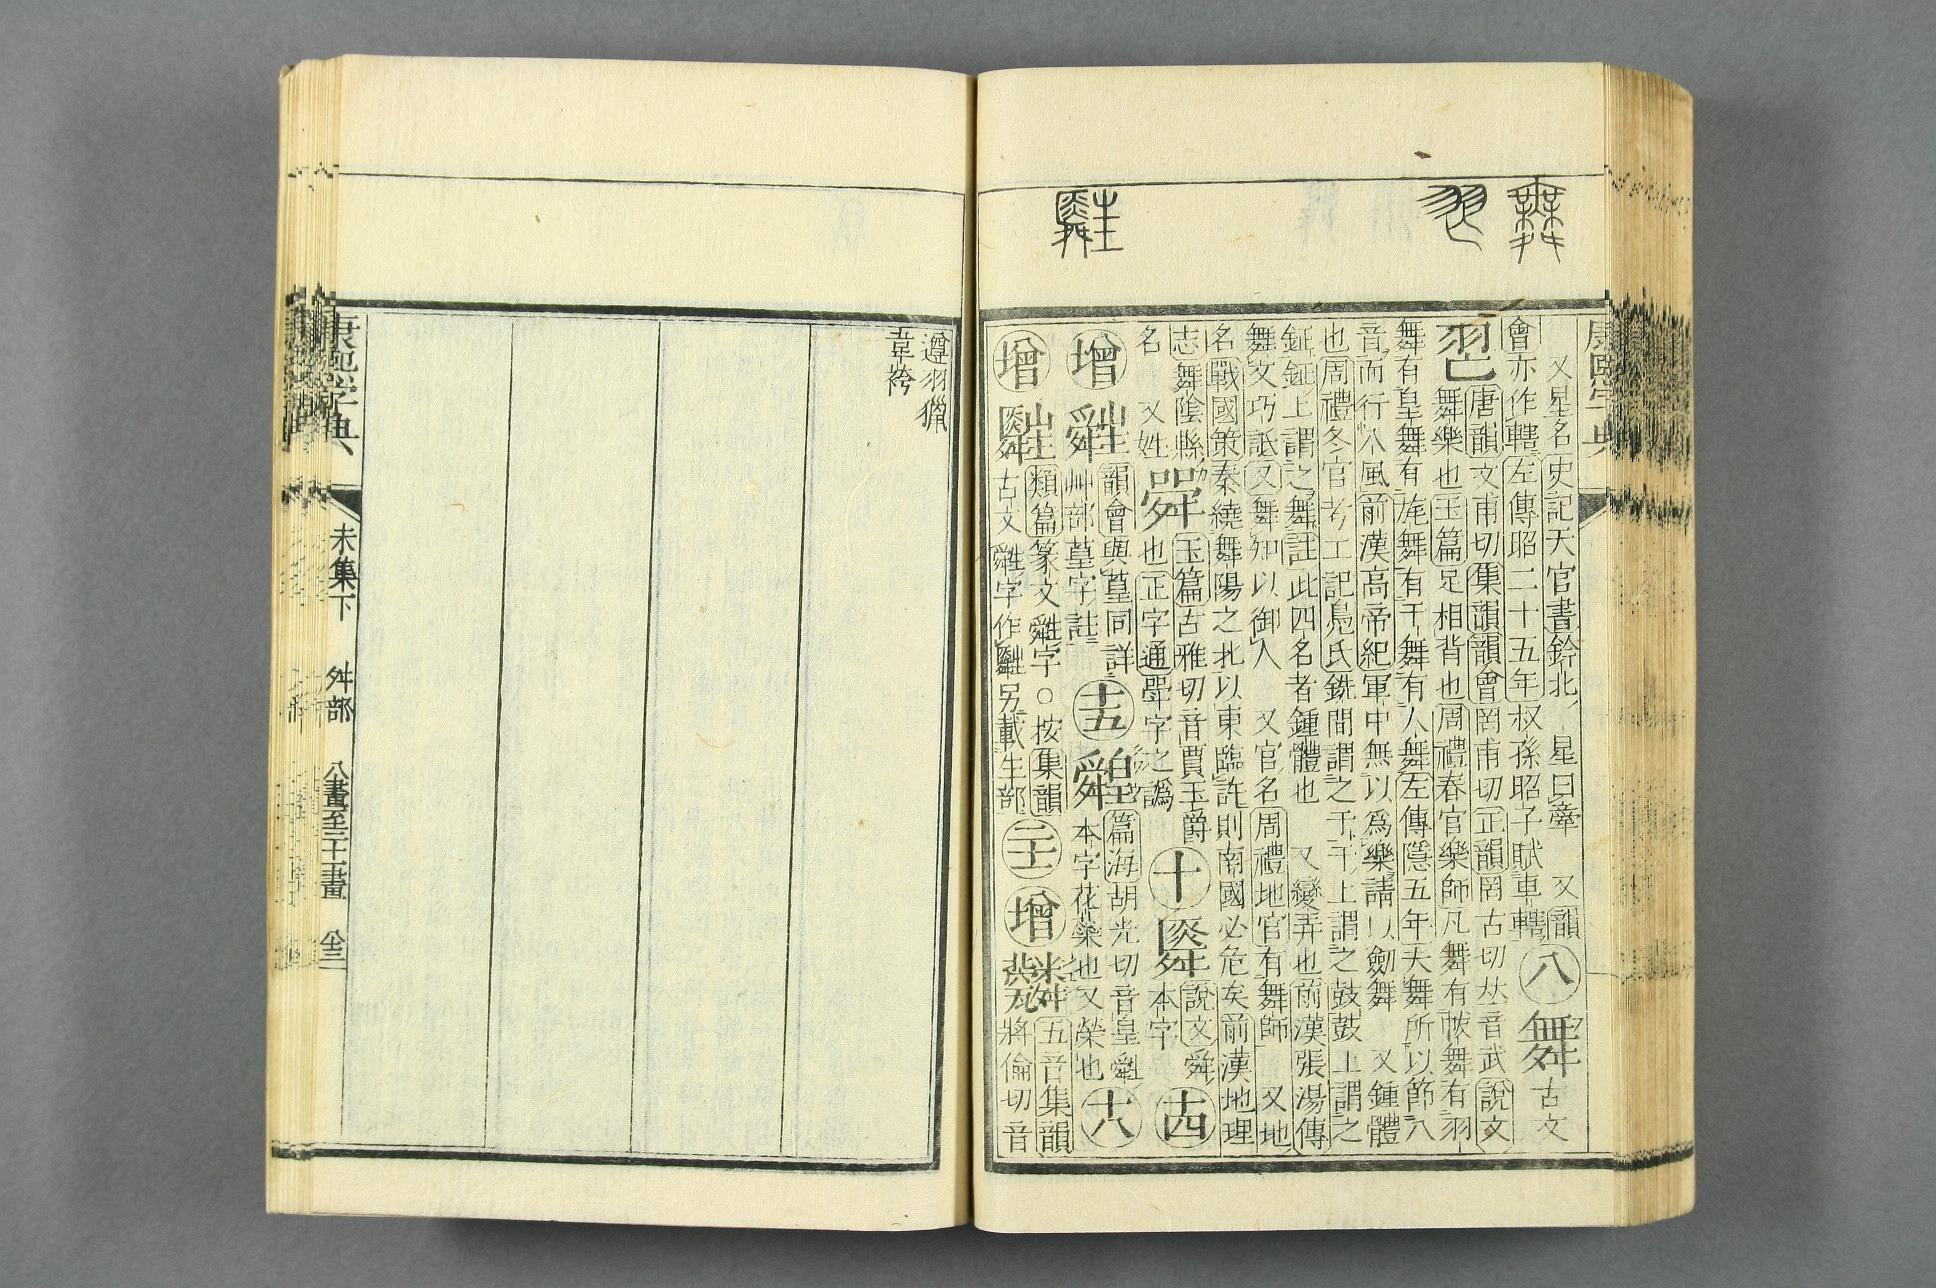 又星名史記天官書鈐北一星曰舝　又韻
會亦作轄左傳昭二十五年叔孫昭子賦車轄
八
舞 古文
𦐀
唐韻文甫切集韻韻會罔甫切正韻罔古切𠀤音武說文
舞樂也玉篇足相背也周禮春官樂師凡舞有帗舞有羽
舞有皇舞有旄舞有干舞有人舞左傳隱五年夫舞所以節八
音而行八風前漢高帝紀軍中無以爲樂請以劒舞　又鍾體
也周禮冬官考工記鳧氏銑間謂之于于上謂之鼓鼓上謂之
鉦鉦上謂之舞註此四名者鍾體也　又變弄也前漢張湯傳
舞文巧詆又舞知以御人　又官名周禮地官有舞師　又地
名戰國策秦繞舞陽之北以東臨許則南國必危矣前漢地理
志舞陰縣
名　又姓
𦥷
玉篇古雅切音賈玉爵
也正字通斝字之譌
十
說文舜
本字
十四
增
韻會與葟同詳
艸部葟字註
十五
篇海胡光切音皇
本字花葉也又榮也
十八
增
類篇篆文 字○按集韻
古文 字作 另載生部
二十
增
五音集韻
將倫切音
遵羽獵
韋袴
康熙字典
未集下
舛部
八畫至二十畫